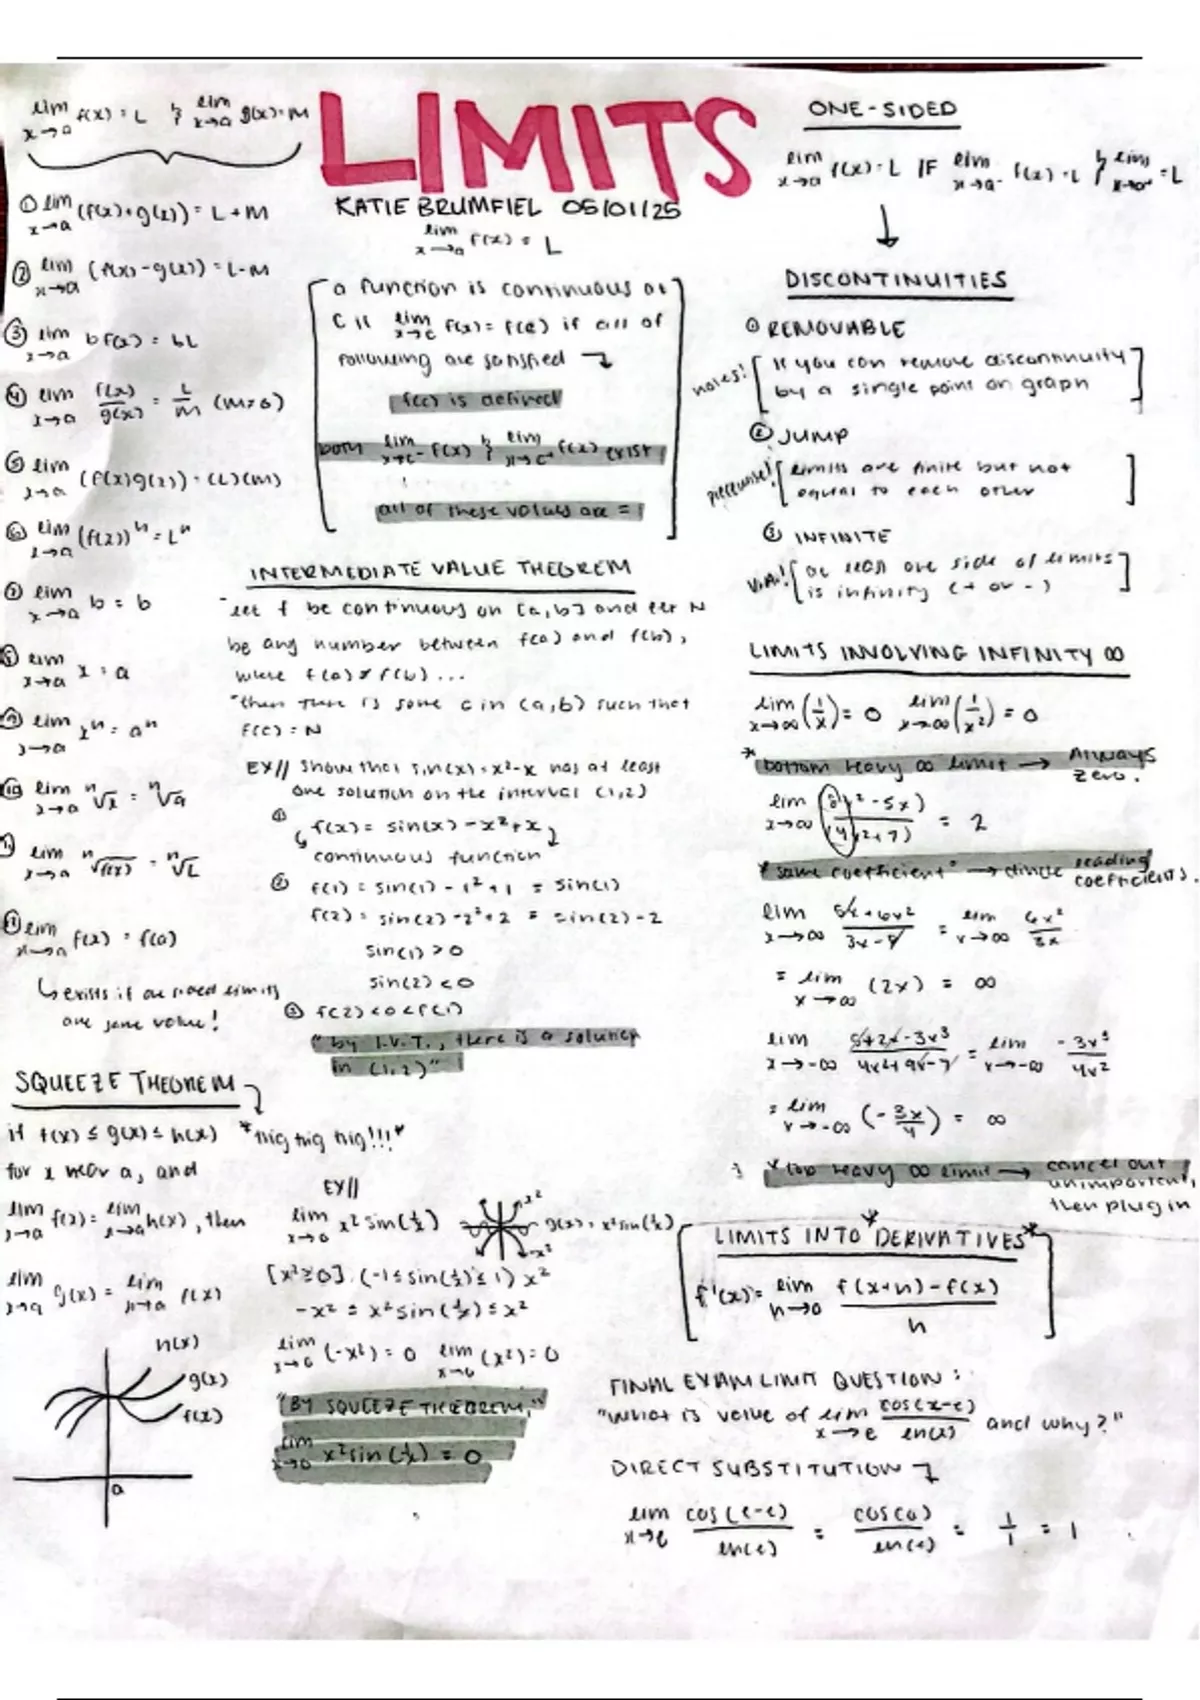 LIMITS
KATIE BRUMFIEL 05/01/25
lim x→a f(x) = L
lim x→a f(x) = L & lim x→a g(x) = M
① lim x→a (f(x)+g(x)) = L+M
② lim x→a (f(x)-g(x)) = L-M
③ lim x→a bf(x) = bL
④ lim x→a f(x)/g(x) = L/M
⑤ lim x→a (f(x)g(x)) = (L)(M)
⑥ lim x→a (f(x))ⁿ = Lⁿ
⑦ lim x→a b = b
⑧ lim x→a x = a
⑨ lim x→a xⁿ = aⁿ
⑩ lim x→a ⁿ√x = ⁿ√a
lim x→a ⁿ√f(x) = ⁿ√L
lim x→a f(x) = f(a)
↳ exists if one sided limits
are same value!
SQUEEZE THEOREM
if f(x) ≤ g(x) ≤ h(x)
for x near a, and
lim x→a f(x) = lim x→a h(x), then
lim x→a g(x) = lim x→a f(x)
h(x)
g(x)
f(x)
a
a function is continuous at
c if lim x→c f(x) = f(c) if all of
following are satisfied
f(c) is defined
both lim x→c⁻ f(x) & lim x→c⁺ f(x) exist
all of these values are =
INTERMEDIATE VALUE THEOREM
"let f be continuous on [a,b] and let N
be any number between f(a) and f(b),
where f(a) ≠ f(b)...
"then there is some c in (a,b) such that
f(c) = N
EX// Show that sin(x) = x²-x has at least
one solution on the interval (1,2)
① f(x) = sin(x) - x² + x
continuous function
② f(1) = sin(1) - 1² + 1 = sin(1)
f(2) = sin(2) - 2² + 2 = sin(2) - 2
sin(1) > 0
sin(2) < 0
③ f(2) < 0 < f(1)
"by I.V.T., there is a solution
in (1,2)"
EX//
lim x→0 x² sin(1/x)
x²
-x²
g(x) = x² sin(1/x)
[x² ≥ 0] (-1 ≤ sin(1/x) ≤ 1) x²
-x² ≤ x² sin(1/x) ≤ x²
lim x→0 (-x²) = 0 lim x→0 (x²) = 0
"BY SQUEEZE THEOREM,"
lim x→0 x² sin(1/x) = 0
ONE-SIDED
lim x→a f(x) = L IF lim x→a⁻ f(x) = L & lim x→a⁺ = L
DISCONTINUITIES
① REMOVABLE
holes!
If you can remove discontinuity
by a single point on graph
② JUMP
piecewise!
limits are finite but not
equal to each other
③ INFINITE
V.A.!
at least one side of limits
is infinity (+ or -)
LIMITS INVOLVING INFINITY ∞
lim x→∞ (1/x) = 0 lim x→∞ (1/x²) = 0
* bottom heavy ∞ limit → Always
zero.
= 2
* "same coefficient" → divide leading
coefficients.
lim x→∞ = lim x→∞ 6x²/3x
= lim x→∞ (2x) = ∞
lim x→-∞ = lim x→-∞ -3x³/4x²
= lim x→-∞ (-3x/4) = ∞
* top heavy ∞ limit → cancel out
unimportant,
then plug in
LIMITS INTO *DERIVATIVES*
f'(x) = lim h→0 f(x+h)-f(x)/h
FINAL EXAM LIMIT QUESTION:
"What is value of lim x→e cos(x-e)/ln(x) and why?"
DIRECT SUBSTITUTION
lim x→e cos(e-e)/ln(e) = cos(0)/ln(e) = 1/1 = 1